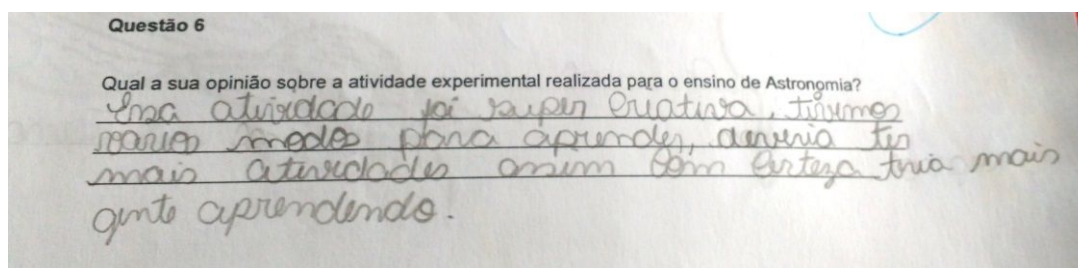 Questão 6
Qual a sua opinião sobre a atividade experimental realizada para o ensino de Astronomia?
Essa atividade foi super criativa, tivemos
varios modos para aprender, deveria ter
mais atividades assim com certeza teria mais
gente aprendendo.